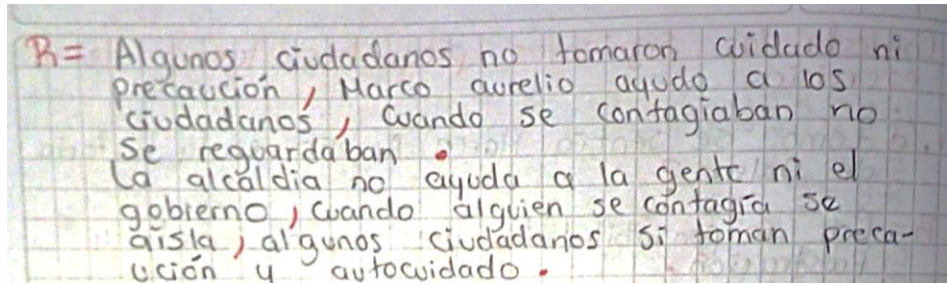 R= Algunos ciudadanos no tomaron cuidado ni
precaución, Marco aurelio ayudo a los
ciudadanos, cuando se contagiaban no
se reguardaban.
La alcaldia no ayuda a la gente ni el
gobierno, cuando alguien se contagia se
aisla, algunos ciudadanos si toman preca-
ución y autocuidado.